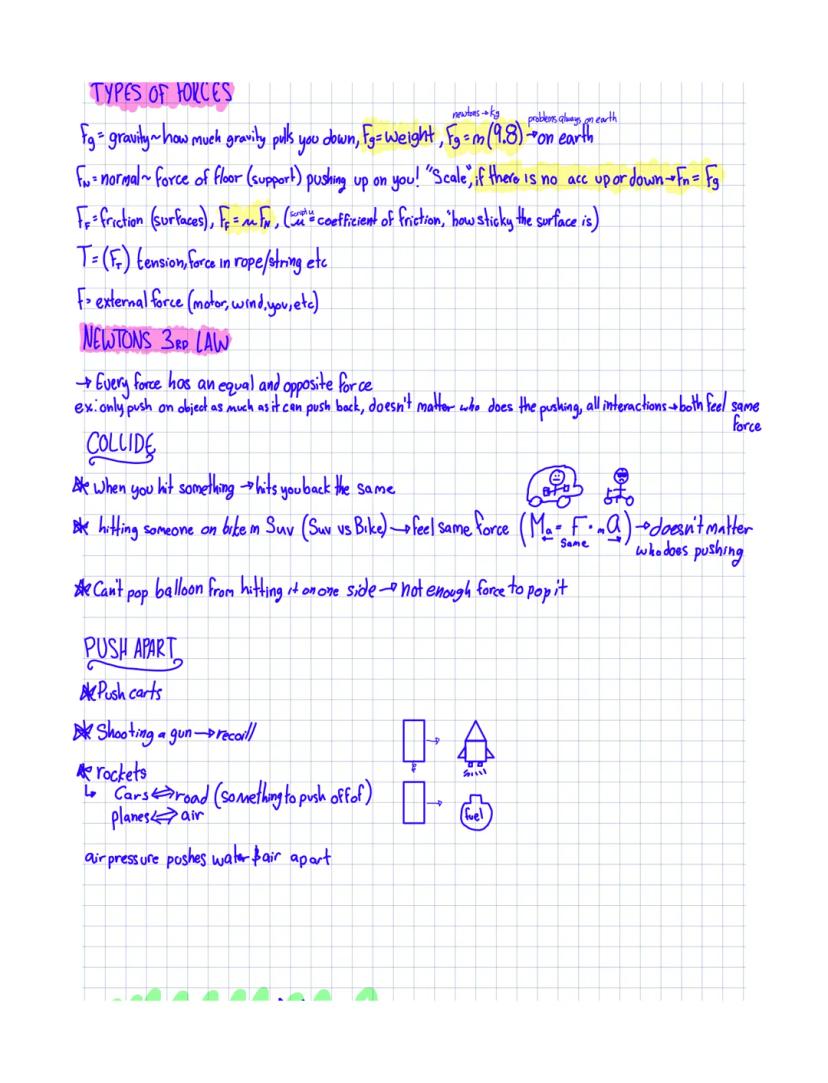 TYPES OF FORCES
newtons → kg
problems always on earth
Fg = gravity ~ how much gravity pulls you down, Fg = weight, Fg = m(9.8) → on earth
FN = normal ~ force of floor (support) pushing up on you! "Scale", if there is no acc up or down → Fn = Fg
FF = friction (surfaces), FF = μ FN, (script u μ = coefficient of friction, "how sticky the surface is)
T = (FT) tension, force in rope/string etc
F = external force (motor, wind, you, etc)
NEWTONS 3RD LAW
→ Every force has an equal and opposite force
ex: only push on object as much as it can push back, doesn't matter who does the pushing, all interactions → both feel same
force
COLLIDE
* When you hit something → hits you back the same
* hitting someone on bike in Suv (Suv vs Bike) → feel same force (Ma = F = mA) → doesn't matter
same
who does pushing
* Can't pop balloon from hitting it on one side → not enough force to pop it
PUSH APART
* Push carts
* Shooting a gun → recoill
* rockets
↳ Cars ⟺ road (something to push off of)
planes ⟺ air
fuel
air pressure pushes water & air apart